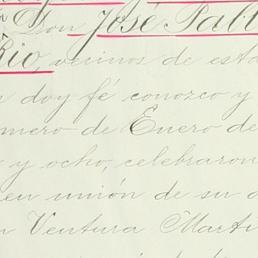 Don José Pabl
Rio, vecinos de esta
doy fé conozco y
mero de Enero de
y ocho, celebraron
en unión de su
n Ventura Marti